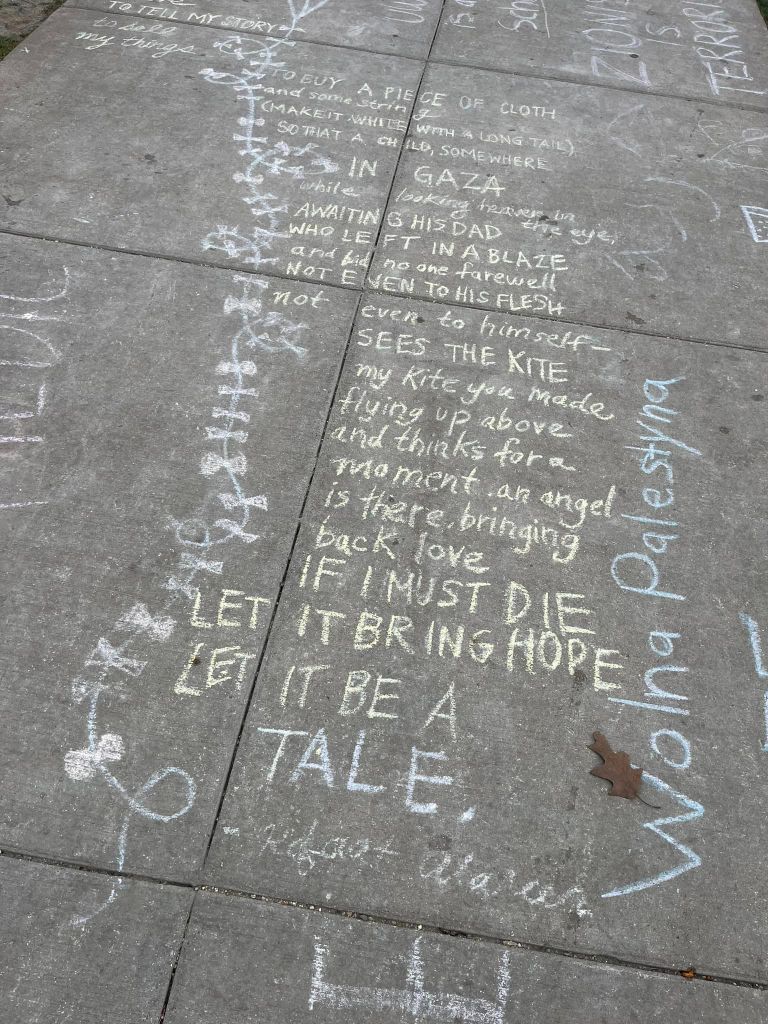 TO TELL MY STORY
to sell
my things
TO BUY A PIECE OF CLOTH
and some string
(MAKE IT WHITE WITH A LONG TAIL)
SO THAT A CHILD, SOMEWHERE
IN GAZA
while looking heaven in
the eye,
AWAITING HIS DAD
WHO LEFT IN A BLAZE
and bid no one farewell
NOT EVEN TO HIS FLESH
not even to himself—
SEES THE KITE
my kite you made
flying up above
and thinks for a
moment. an angel
is there. bringing
back love
IF I MUST DIE
LET IT BRING HOPE
LET IT BE A
TALE.
- Refaat Alareer
Wolna Palestyna
IS